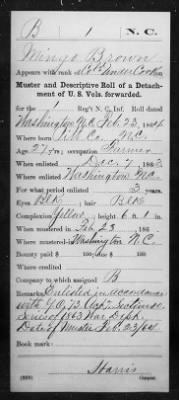 B 1 N. C.
Mingo Brown
Appears with rank of Col. Under Cook on
Muster and Descriptive Roll of a Detach-
ment of U. S. Vols. forwarded.
for the 1 Reg't N. C. Inf. Roll dated
Washington N.C. Feb. 23, 1864
Where born Co., N.C.
Age 27 y'rs; occupation Farmer
When enlisted Dec. 7, 1863
Where enlisted Washington N.C.
For what period enlisted 3 years.
Eyes Blk; hair Blk
Complexion Yellow; height 6 ft. 1 in.
When mustered in Feb. 23, 186
Where mustered in Washington N.C.
Bounty paid $ 100; due $ 100
Where credited
Company to which assigned B
Remarks: Enlisted in accordance
with G.O. 73
Series of 1863 War Dept.
Date of Muster Feb. 23/64
Book mark:
Harris
Copyist.